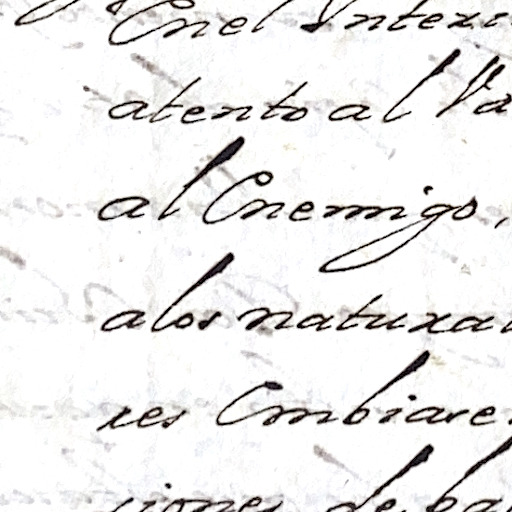 Enel Interi
atento al Va
al Enemigo,
alos natura
res Embiare
ciones de ba